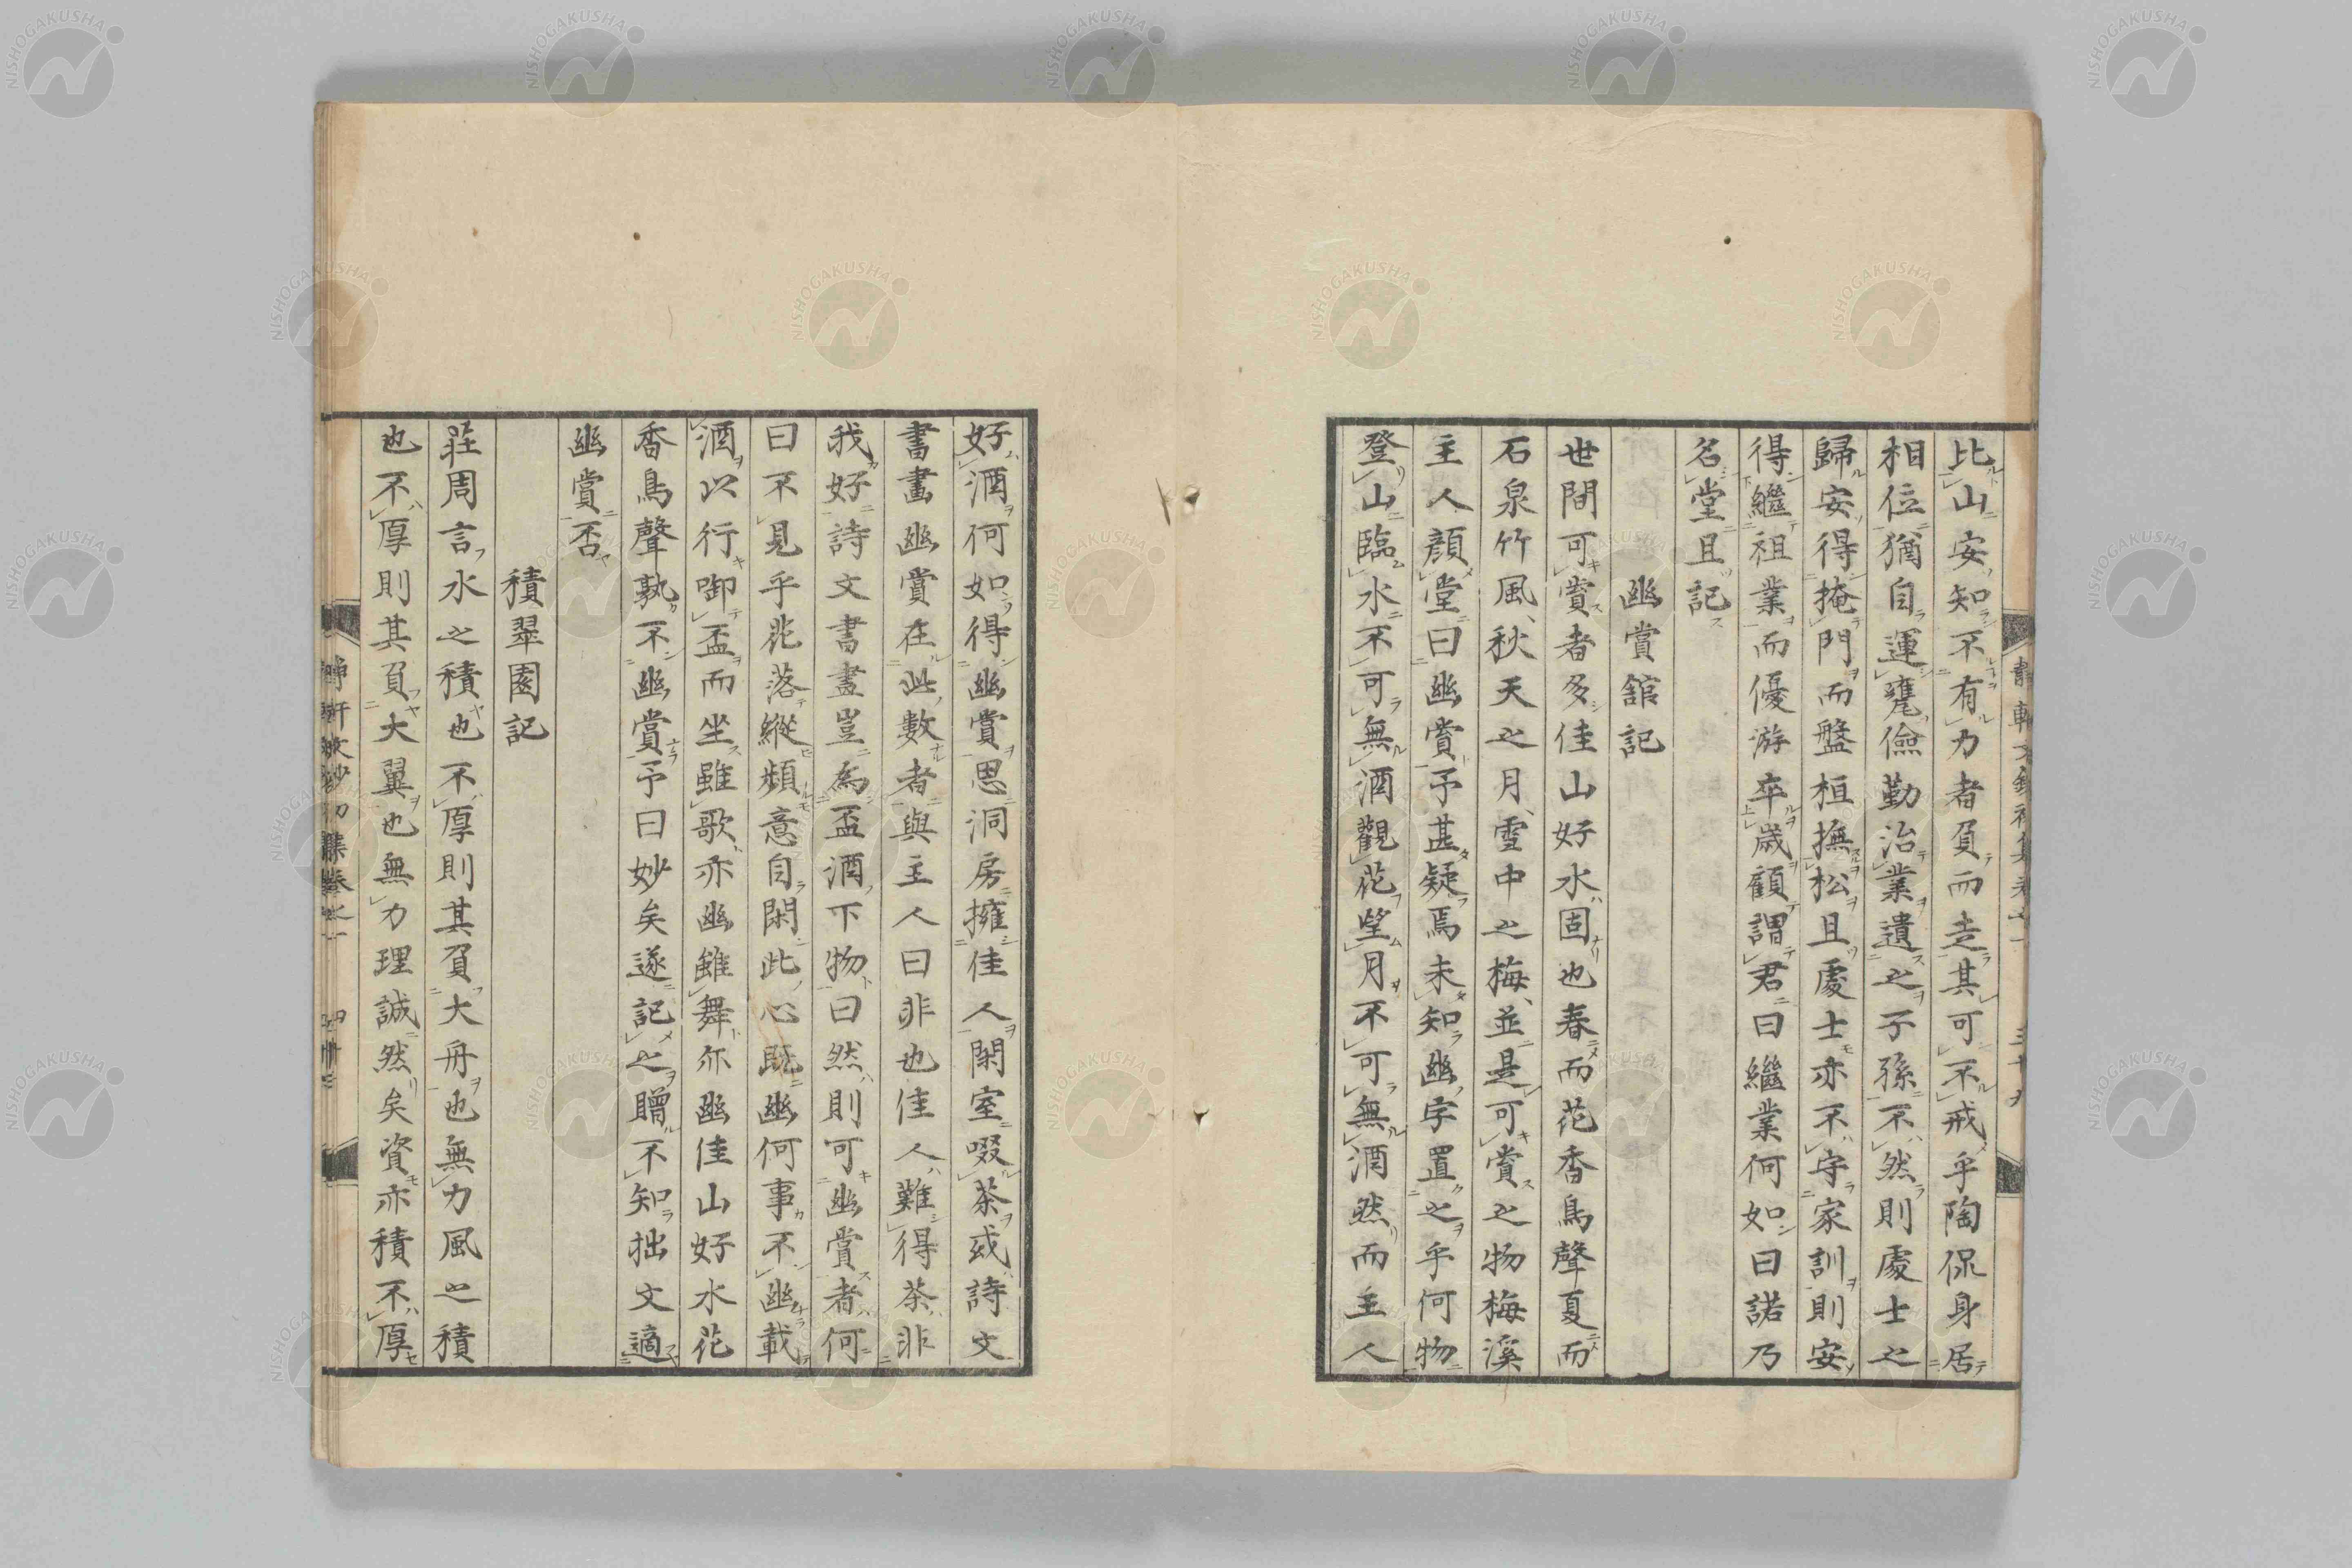 比山安知不有力者負而走其可不戒乎陶侃身居
相位猶自運甓儉勤治業遺之子孫不然則處士之
歸安得掩門而盤桓撫松且處士亦不守家訓則安
得繼祖業而優游卒歲顧謂君曰繼業何如曰諾乃
名堂且記
幽賞舘記
世間可賞者多佳山好水固也春而花香鳥聲夏而
石泉竹風秋天之月雪中之梅並是可賞之物梅溪
主人顏堂曰幽賞予甚疑焉未知幽字置之乎何物
登山臨水不可無酒觀花望月不可無酒然而主人
好酒何如得幽賞思洞房擁佳人閑室啜茶或詩文
書畫幽賞在此數者與主人曰非也佳人難得茶非
我好詩文書畫豈為盃酒下物曰然則可幽賞者何
曰不見乎兆花落縱頻意自閑此心既幽何事不幽載
酒以行啣盃而坐雖歌亦幽雖舞亦幽佳山好水花
香鳥聲孰不幽賞予曰妙矣遂記之贈不知拙文適
幽賞否
積翠園記
莊周言水之積也不厚則其負大舟也無力風之積
也不厚則其負大翼也無力理誠然矣資亦積不厚
NISHOGAKUSHA